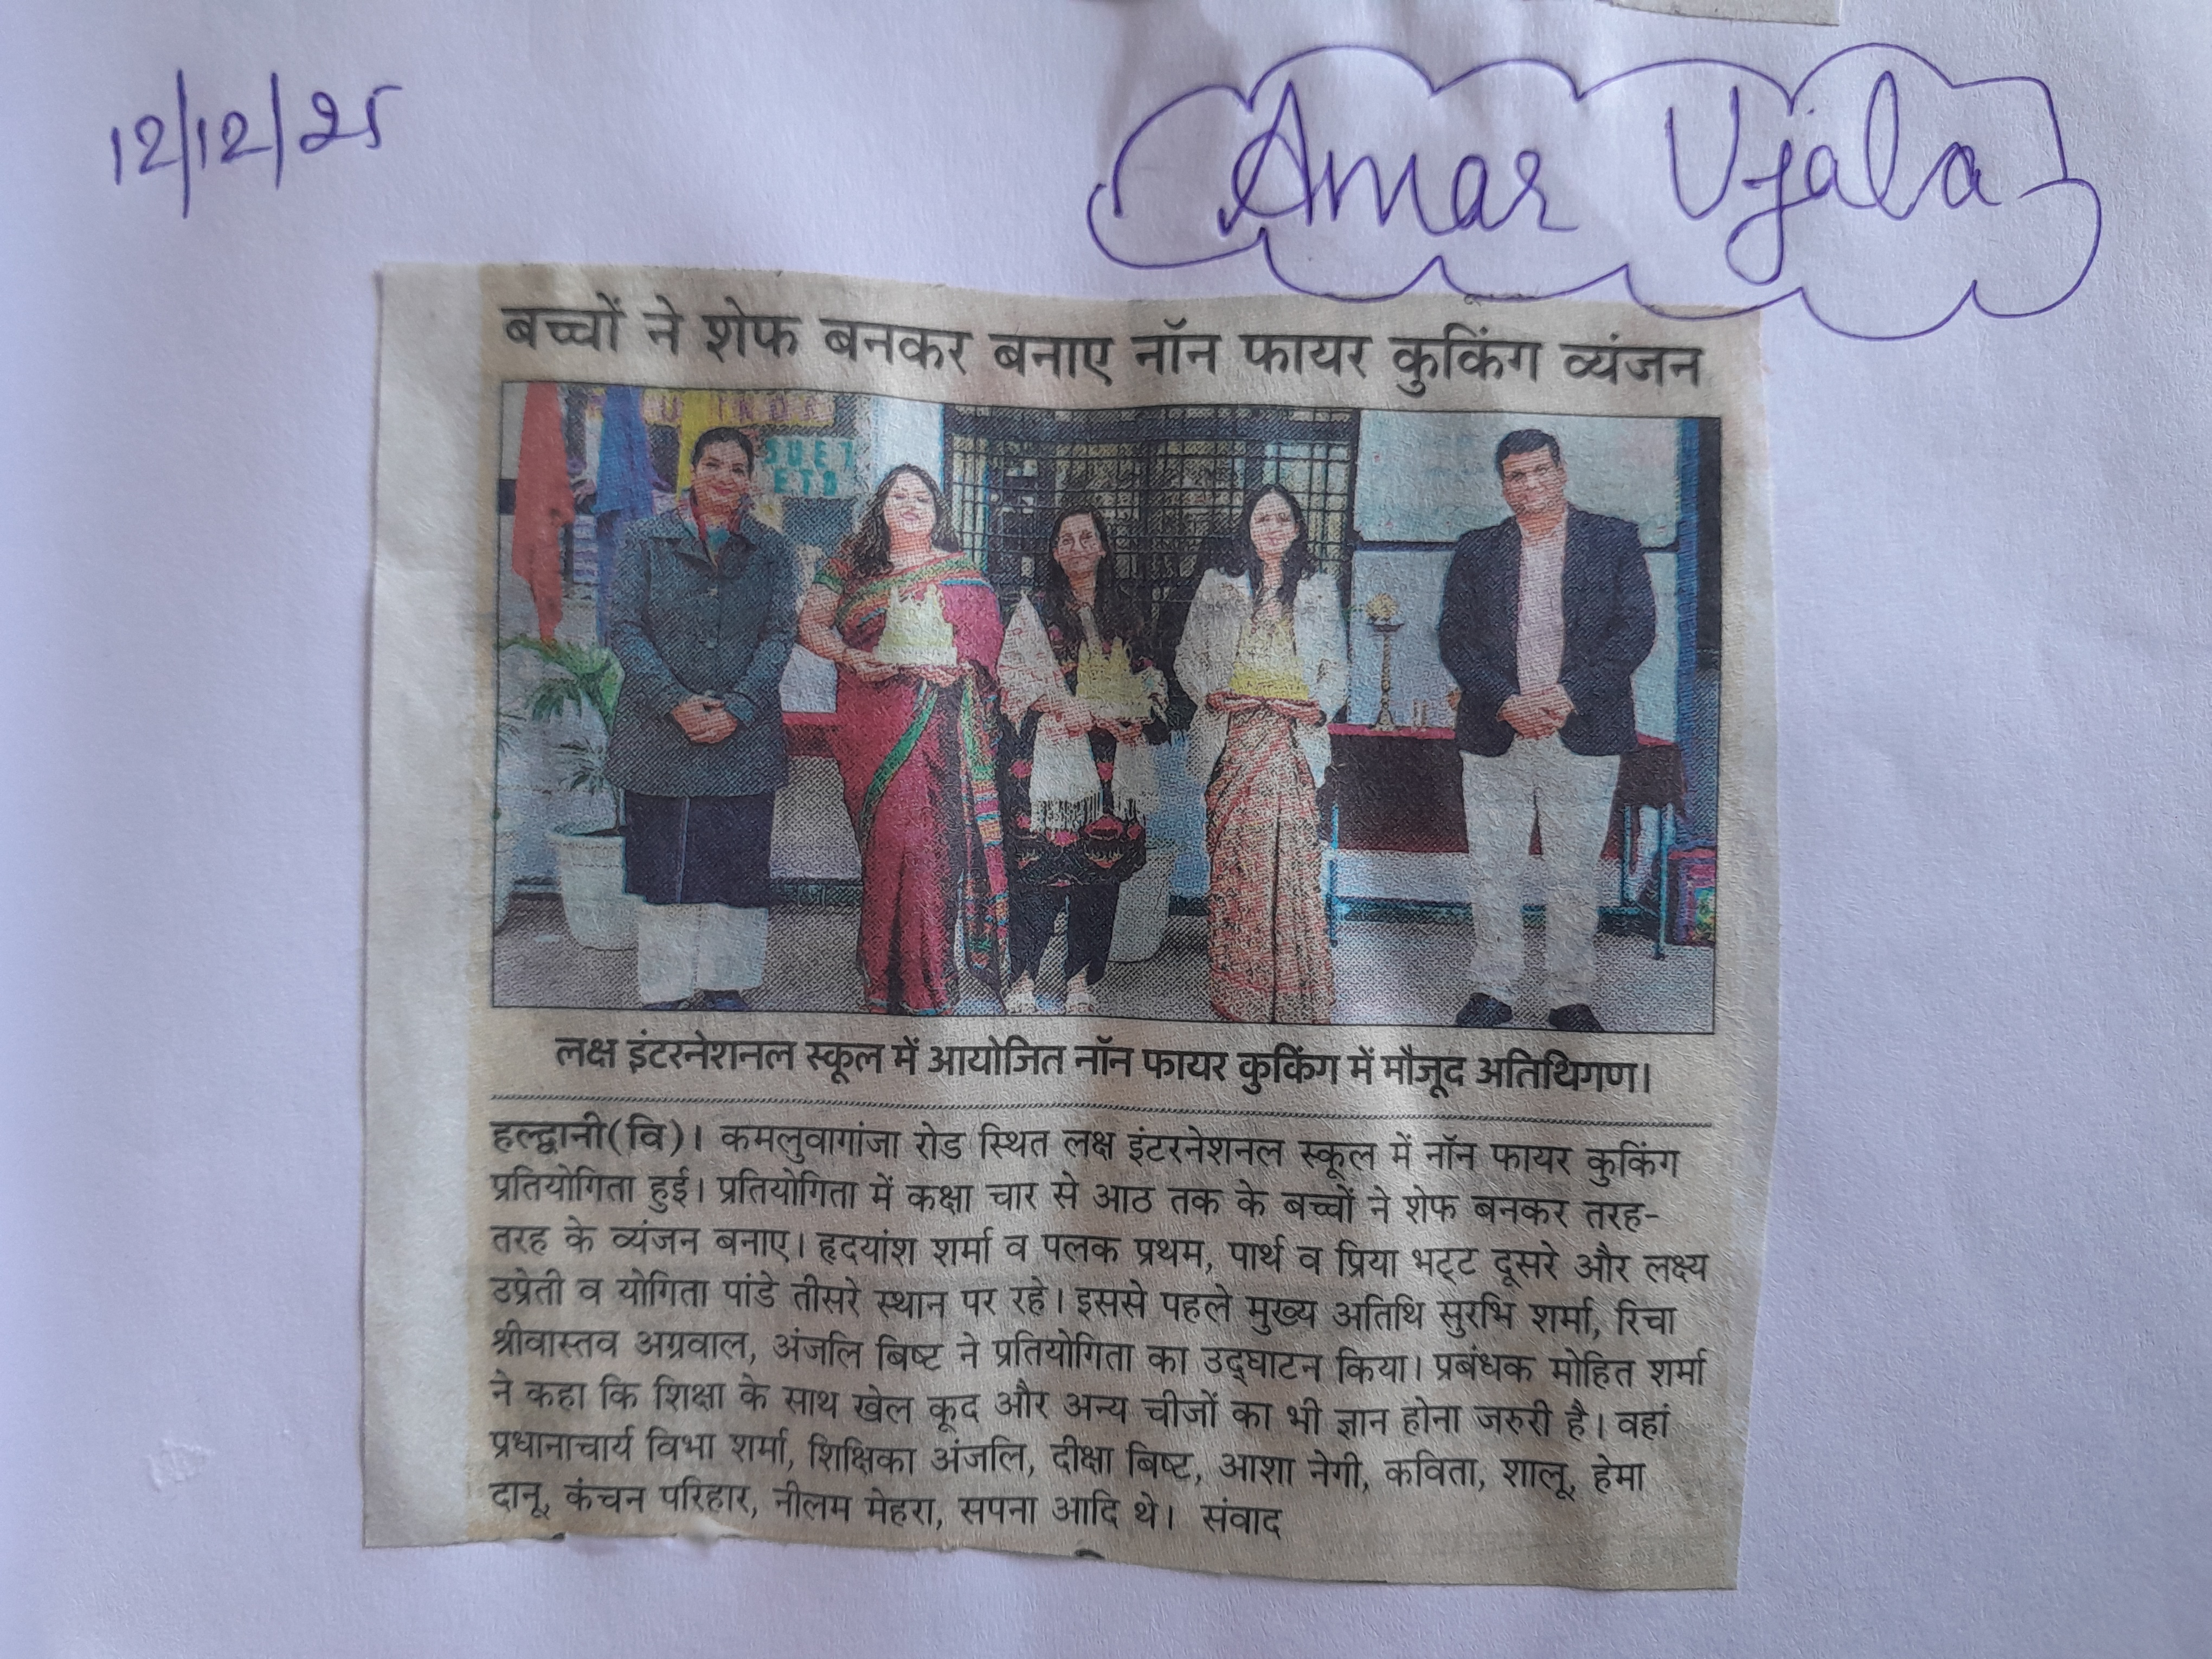 12/12/25
Amar Ujala
बच्चों ने शेफ बनकर बनाए नॉन फायर कुकिंग व्यंजन
लक्ष इंटरनेशनल स्कूल में आयोजित नॉन फायर कुकिंग में मौजूद अतिथिगण।
हल्द्वानी(वि)। कमलुवागांजा रोड स्थित लक्ष इंटरनेशनल स्कूल में नॉन फायर कुकिंग
प्रतियोगिता हुई। प्रतियोगिता में कक्षा चार से आठ तक के बच्चों ने शेफ बनकर तरह-
तरह के व्यंजन बनाए। हृदयांश शर्मा व पलक प्रथम, पार्थ व प्रिया भट्ट दूसरे और लक्ष्य
उप्रेती व योगिता पांडे तीसरे स्थान पर रहे। इससे पहले मुख्य अतिथि सुरभि शर्मा, रिचा
श्रीवास्तव अग्रवाल, अंजलि बिष्ट ने प्रतियोगिता का उद्घाटन किया। प्रबंधक मोहित शर्मा
ने कहा कि शिक्षा के साथ खेल कूद और अन्य चीजों का भी ज्ञान होना जरुरी है। वहां
प्रधानाचार्य विभा शर्मा, शिक्षिका अंजलि, दीक्षा बिष्ट, आशा नेगी, कविता, शालू, हेमा
दानू, कंचन परिहार, नीलम मेहरा, सपना आदि थे। संवाद